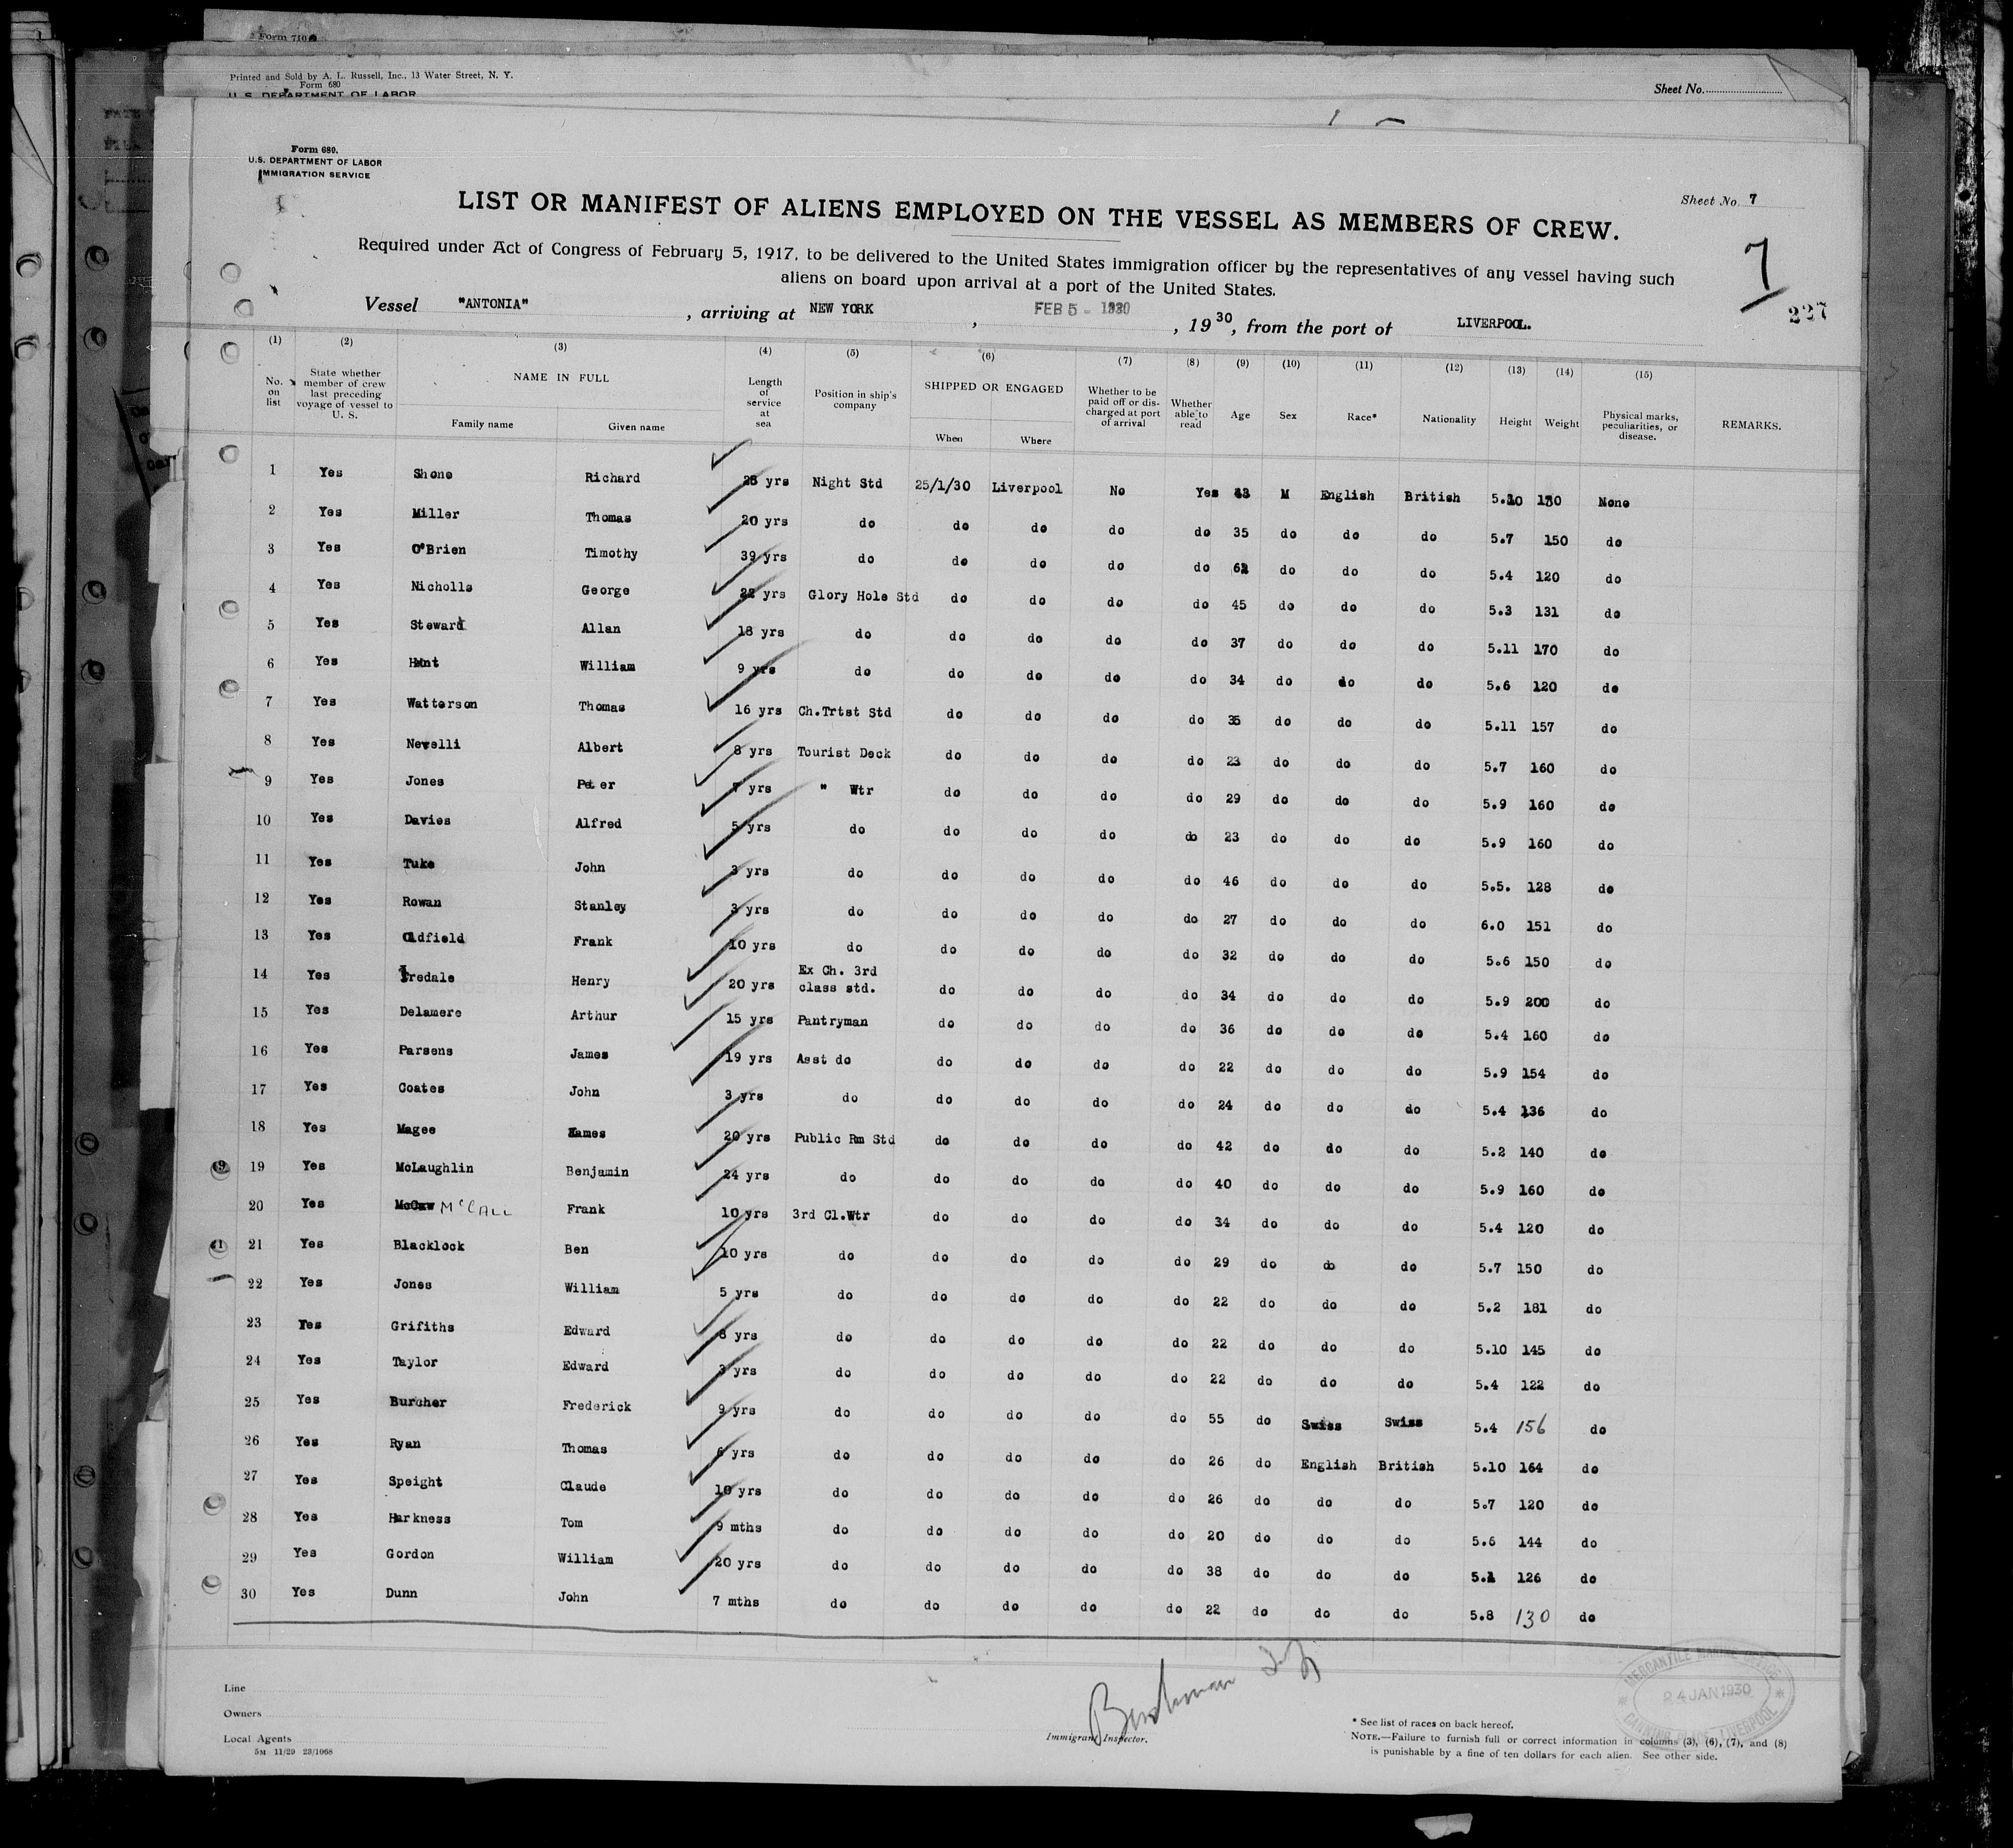 Form 710
Printed and Sold by A. L. Russell, Inc., 13 Water Street, N. Y.
Form 680
U. S. DEPARTMENT OF LABOR
Sheet No.
Form 680.
U.S. DEPARTMENT OF LABOR
IMMIGRATION SERVICE
Sheet No. 7
LIST OR MANIFEST OF ALIENS EMPLOYED ON THE VESSEL AS MEMBERS OF CREW.
7
Required under Act of Congress of February 5, 1917, to be delivered to the United States immigration officer by the representatives of any vessel having such
aliens on board upon arrival at a port of the United States.
227
Vessel "ANTONIA" , arriving at NEW YORK , FEB 5 - 1930 , 19 30, from the port of LIVERPOOL.
(1) (2) (3) (4) (5) (6) (7) (8) (9) (10) (11) (12) (13) (14) (15)
No. on list State whether member of crew last preceding voyage of vessel to U. S. NAME IN FULL Family name Given name Length of service at sea Position in ship's company SHIPPED OR ENGAGED When Where Whether to be paid off or discharged at port of arrival Whether able to read Age Sex Race* Nationality Height Weight Physical marks, peculiarities, or disease. REMARKS.
1 Yes Shone Richard yrs Night Std 25/1/30 Liverpool No Yes 43 M English British 5.10 130 None
2 Yes Miller Thomas 20 yrs do do do do do 35 do do do 5.7 150 do
3 Yes O'Brien Timothy 39 yrs do do do do do 62 do do do 5.4 120 do
4 Yes Nicholls George 22 yrs Glory Hole Std do do do do 45 do do do 5.3 131 do
5 Yes Steward Allan 18 yrs do do do do do 37 do do do 5.11 170 do
6 Yes Hunt William 9 yrs do do do do do 34 do do do 5.6 120 do
7 Yes Watterson Thomas 16 yrs Ch.Trtst Std do do do do 35 do do do 5.11 157 do
8 Yes Novelli Albert 8 yrs Tourist Deck do do do do 23 do do do 5.7 160 do
9 Yes Jones Peter 7 yrs " Wtr do do do do 29 do do do 5.9 160 do
10 Yes Davies Alfred 5 yrs do do do do do 23 do do do 5.9 160 do
11 Yes Tuke John 3 yrs do do do do do 46 do do do 5.5. 128 do
12 Yes Rowan Stanley 3 yrs do do do do do 27 do do do 6.0 151 do
13 Yes Oldfield Frank 10 yrs do do do do do 32 do do do 5.6 150 do
14 Yes Iredale Henry 20 yrs Ex Ch. 3rd class std. do do do do 34 do do do 5.9 200 do
15 Yes Delamere Arthur 15 yrs Pantryman do do do do 36 do do do 5.4 160 do
16 Yes Parsens James 19 yrs Asst do do do do do 22 do do do 5.9 154 do
17 Yes Coates John 3 yrs do do do do do 24 do do do 5.4 136 do
18 Yes Magee James 20 yrs Public Rm Std do do do do 42 do do do 5.2 140 do
19 Yes McLaughlin Benjamin 24 yrs do do do do do 40 do do do 5.9 160 do
20 Yes McCaw McCALL Frank 10 yrs 3rd Cl.Wtr do do do do 34 do do do 5.4 120 do
21 Yes Blacklock Ben 10 yrs do do do do do 29 do do do 5.7 150 do
22 Yes Jones William 5 yrs do do do do do 22 do do do 5.2 181 do
23 Yes Grifiths Edward 8 yrs do do do do do 22 do do do 5.10 145 do
24 Yes Taylor Edward 3 yrs do do do do do 22 do do do 5.4 122 do
25 Yes Burcher Frederick 9 yrs do do do do do 55 do Swiss Swiss 5.4 156 do
26 Yes Ryan Thomas 6 yrs do do do do do 26 do English British 5.10 164 do
27 Yes Speight Claude 10 yrs do do do do do 26 do do do 5.7 120 do
28 Yes Harkness Tom 9 mths do do do do do 20 do do do 5.6 144 do
29 Yes Gordon William 20 yrs do do do do do 38 do do do 5.1 126 do
30 Yes Dunn John 7 mths do do do do do 22 do do do 5.8 130 do
Line
Owners
Local Agents
5M 11/29 23/1068
Immigrant Inspector.
MERCANTILE MARINE OFFICE
24 JAN 1930
CANNING PLACE, LIVERPOOL
* See list of races on back hereof.
NOTE.—Failure to furnish full or correct information in columns (3), (6), (7), and (8)
is punishable by a fine of ten dollars for each alien. See other side.